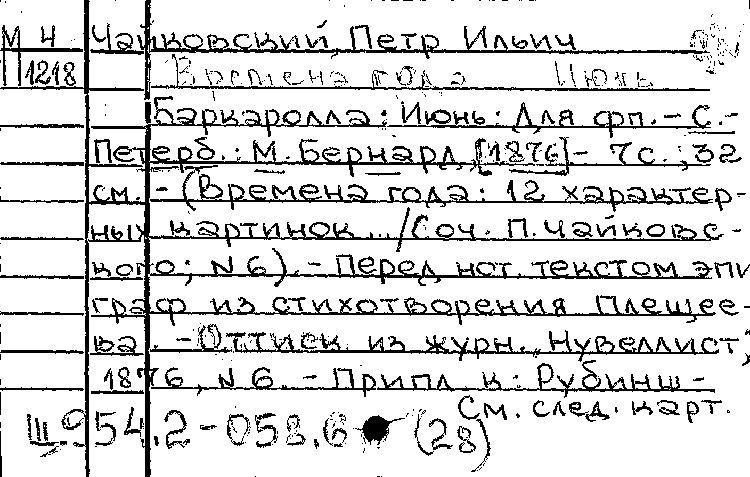 М 4 Чайковский, Петр Ильич
П1218 Времена года Июнь
Баркаролла: Июнь: Для фп. – С.-
Петерб.: М. Бернард, [1876] – 7с.; 32
см. – (Времена года: 12 характер-
ных картинок .../Соч. П. Чайковс-
кого; N 6). – Перед нот. текстом эпи
граф из стихотворения Плещее-
ва. – Оттиск из журн. „Нувеллист",
1876, N 6. – Припл. к: Рубинш-
См. след. карт.
Ш954.2-058.6 (28)